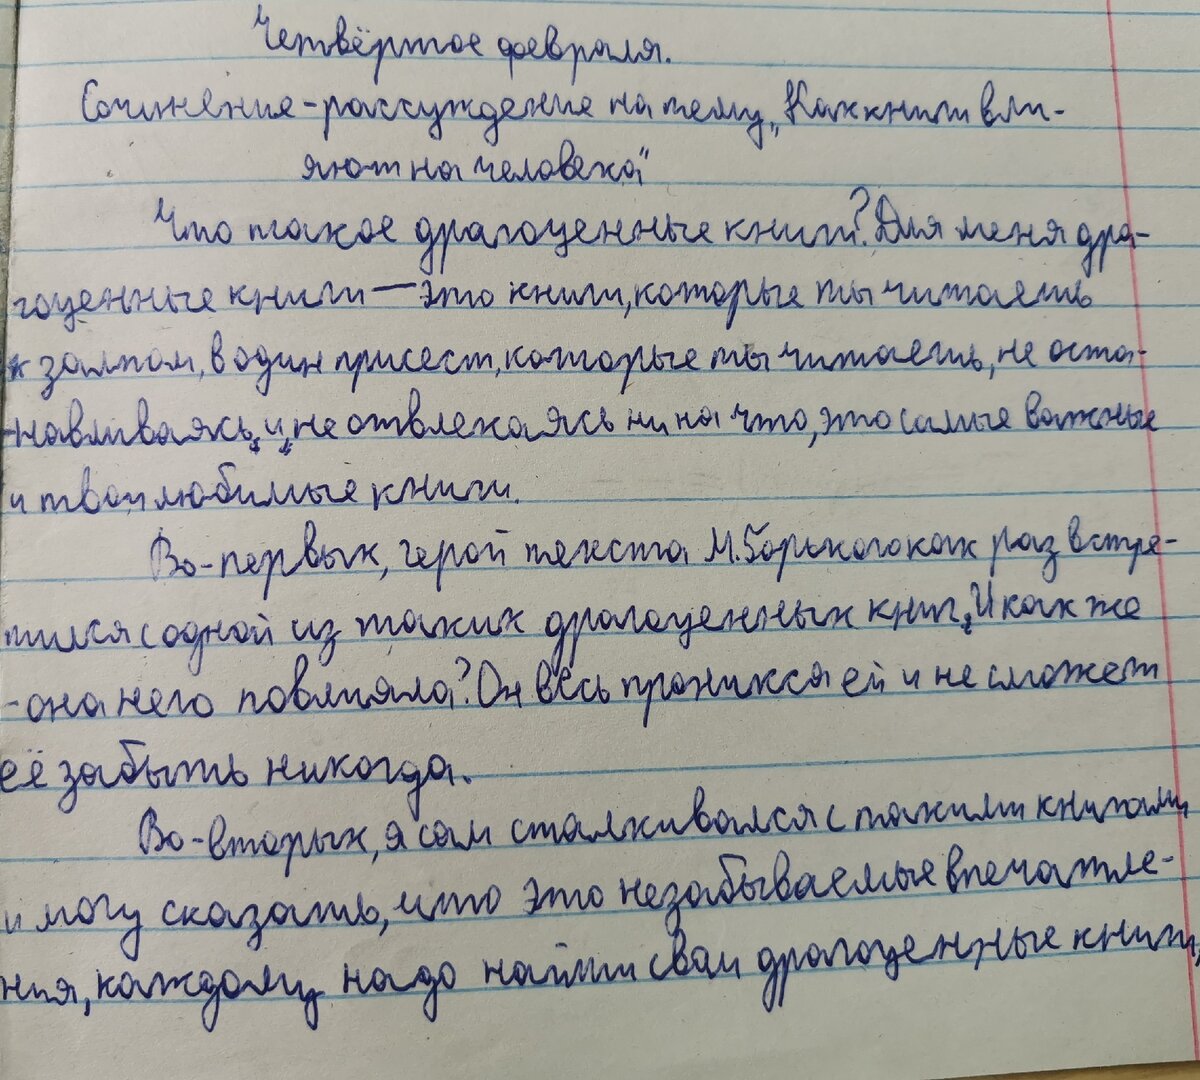 Четвёртое февраля.
Сочинение-рассуждение на тему „Как книги вли-
яют на человека"
Что такое драгоценные книги? Для меня дра-
гоценные книги — это книги, которые ты читаешь
залпом, в один присест, которые ты читаешь, не оста-
навливаясь и не отвлекаясь ни на что, это самые важные
и твои любимые книги.
Во-первых, герой текста М. Горького как раз встре-
тился с одной из таких драгоценных книг. И как же
она на него повлияла? Он весь проникся ей и не сможет
её забыть никогда.
Во-вторых, я сам сталкивался с такими книгами
и могу сказать, что это незабываемые впечатле-
ния, каждому надо найти свои драгоценные книги,